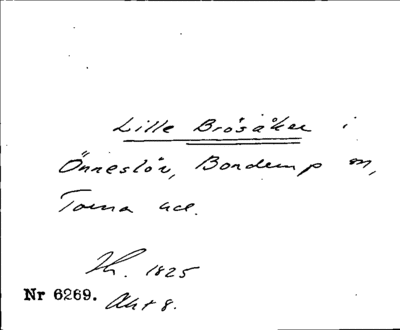 Lille Brösåker i
Önneslöv, Bonderup sn,
Torna hd.
Lh. 1825
Nr 6269. Akt 8.